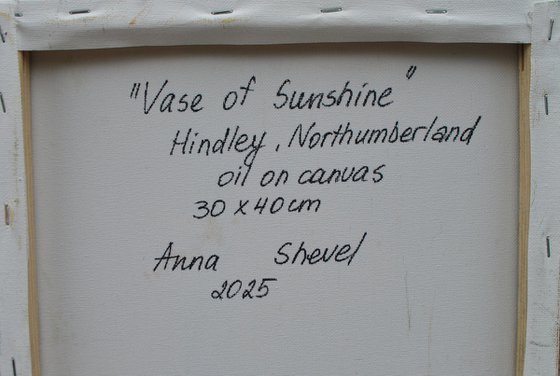 "Vase of Sunshine"
Hindley, Northumberland
oil on canvas
30 x 40 cm
Anna Shevel
2025